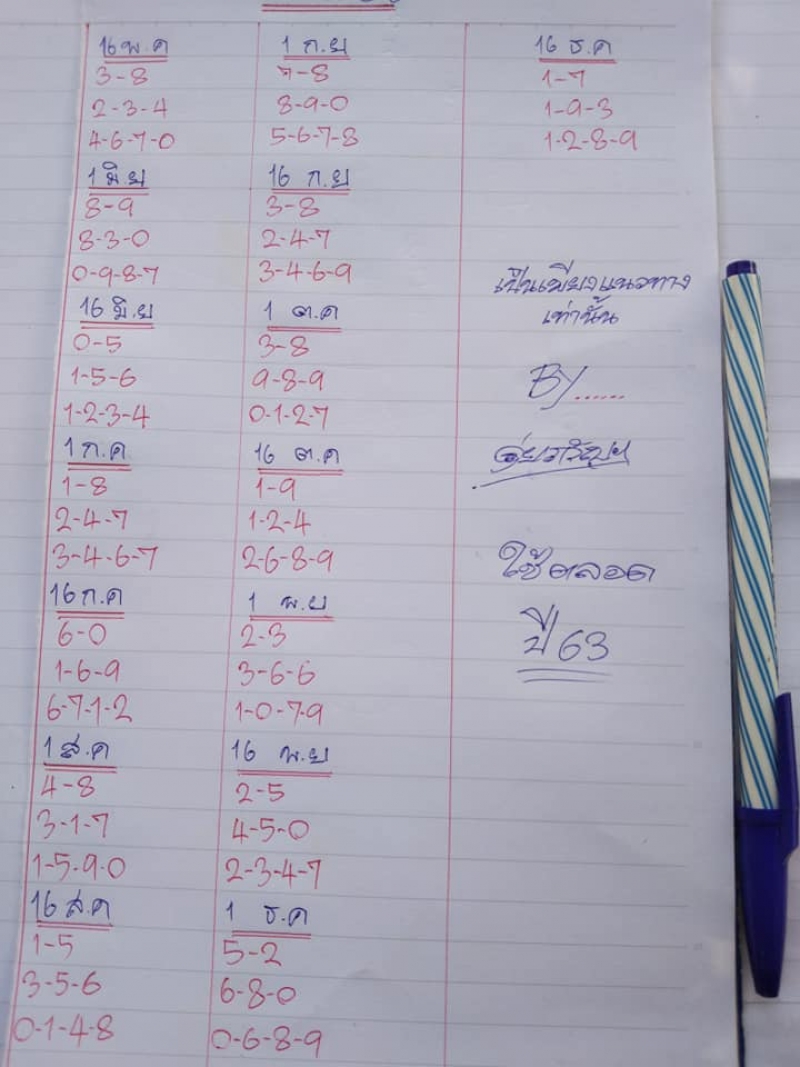 16 พ.ค
3-8
2-3-4
4-6-7-0
1 มิ.ย
8-9
8-3-0
0-9-8-7
16 มิ.ย
0-5
1-5-6
1-2-3-4
1 ก.ค
1-8
2-4-7
3-4-6-7
16 ก.ค
6-0
1-6-9
6-7-1-2
1 ส.ค
4-8
3-1-7
1-5-9-0
16 ส.ค
1-5
3-5-6
0-1-4-8
1 ก.ย
7-8
8-9-0
5-6-7-8
16 ก.ย
3-8
2-4-7
3-4-6-9
1 ต.ค
3-8
9-8-9
0-1-2-7
16 ต.ค
1-9
1-2-4
2-6-8-9
1 พ.ย
2-3
3-6-6
1-0-7-9
16 พ.ย
2-5
4-5-0
2-3-4-7
1 ธ.ค
5-2
6-8-0
0-6-8-9
16 ธ.ค
1-7
1-9-3
1-2-8-9
เป็นเพียงแนวทาง
เท่านั้น
BY......
ใช้ตลอด
ปี 63